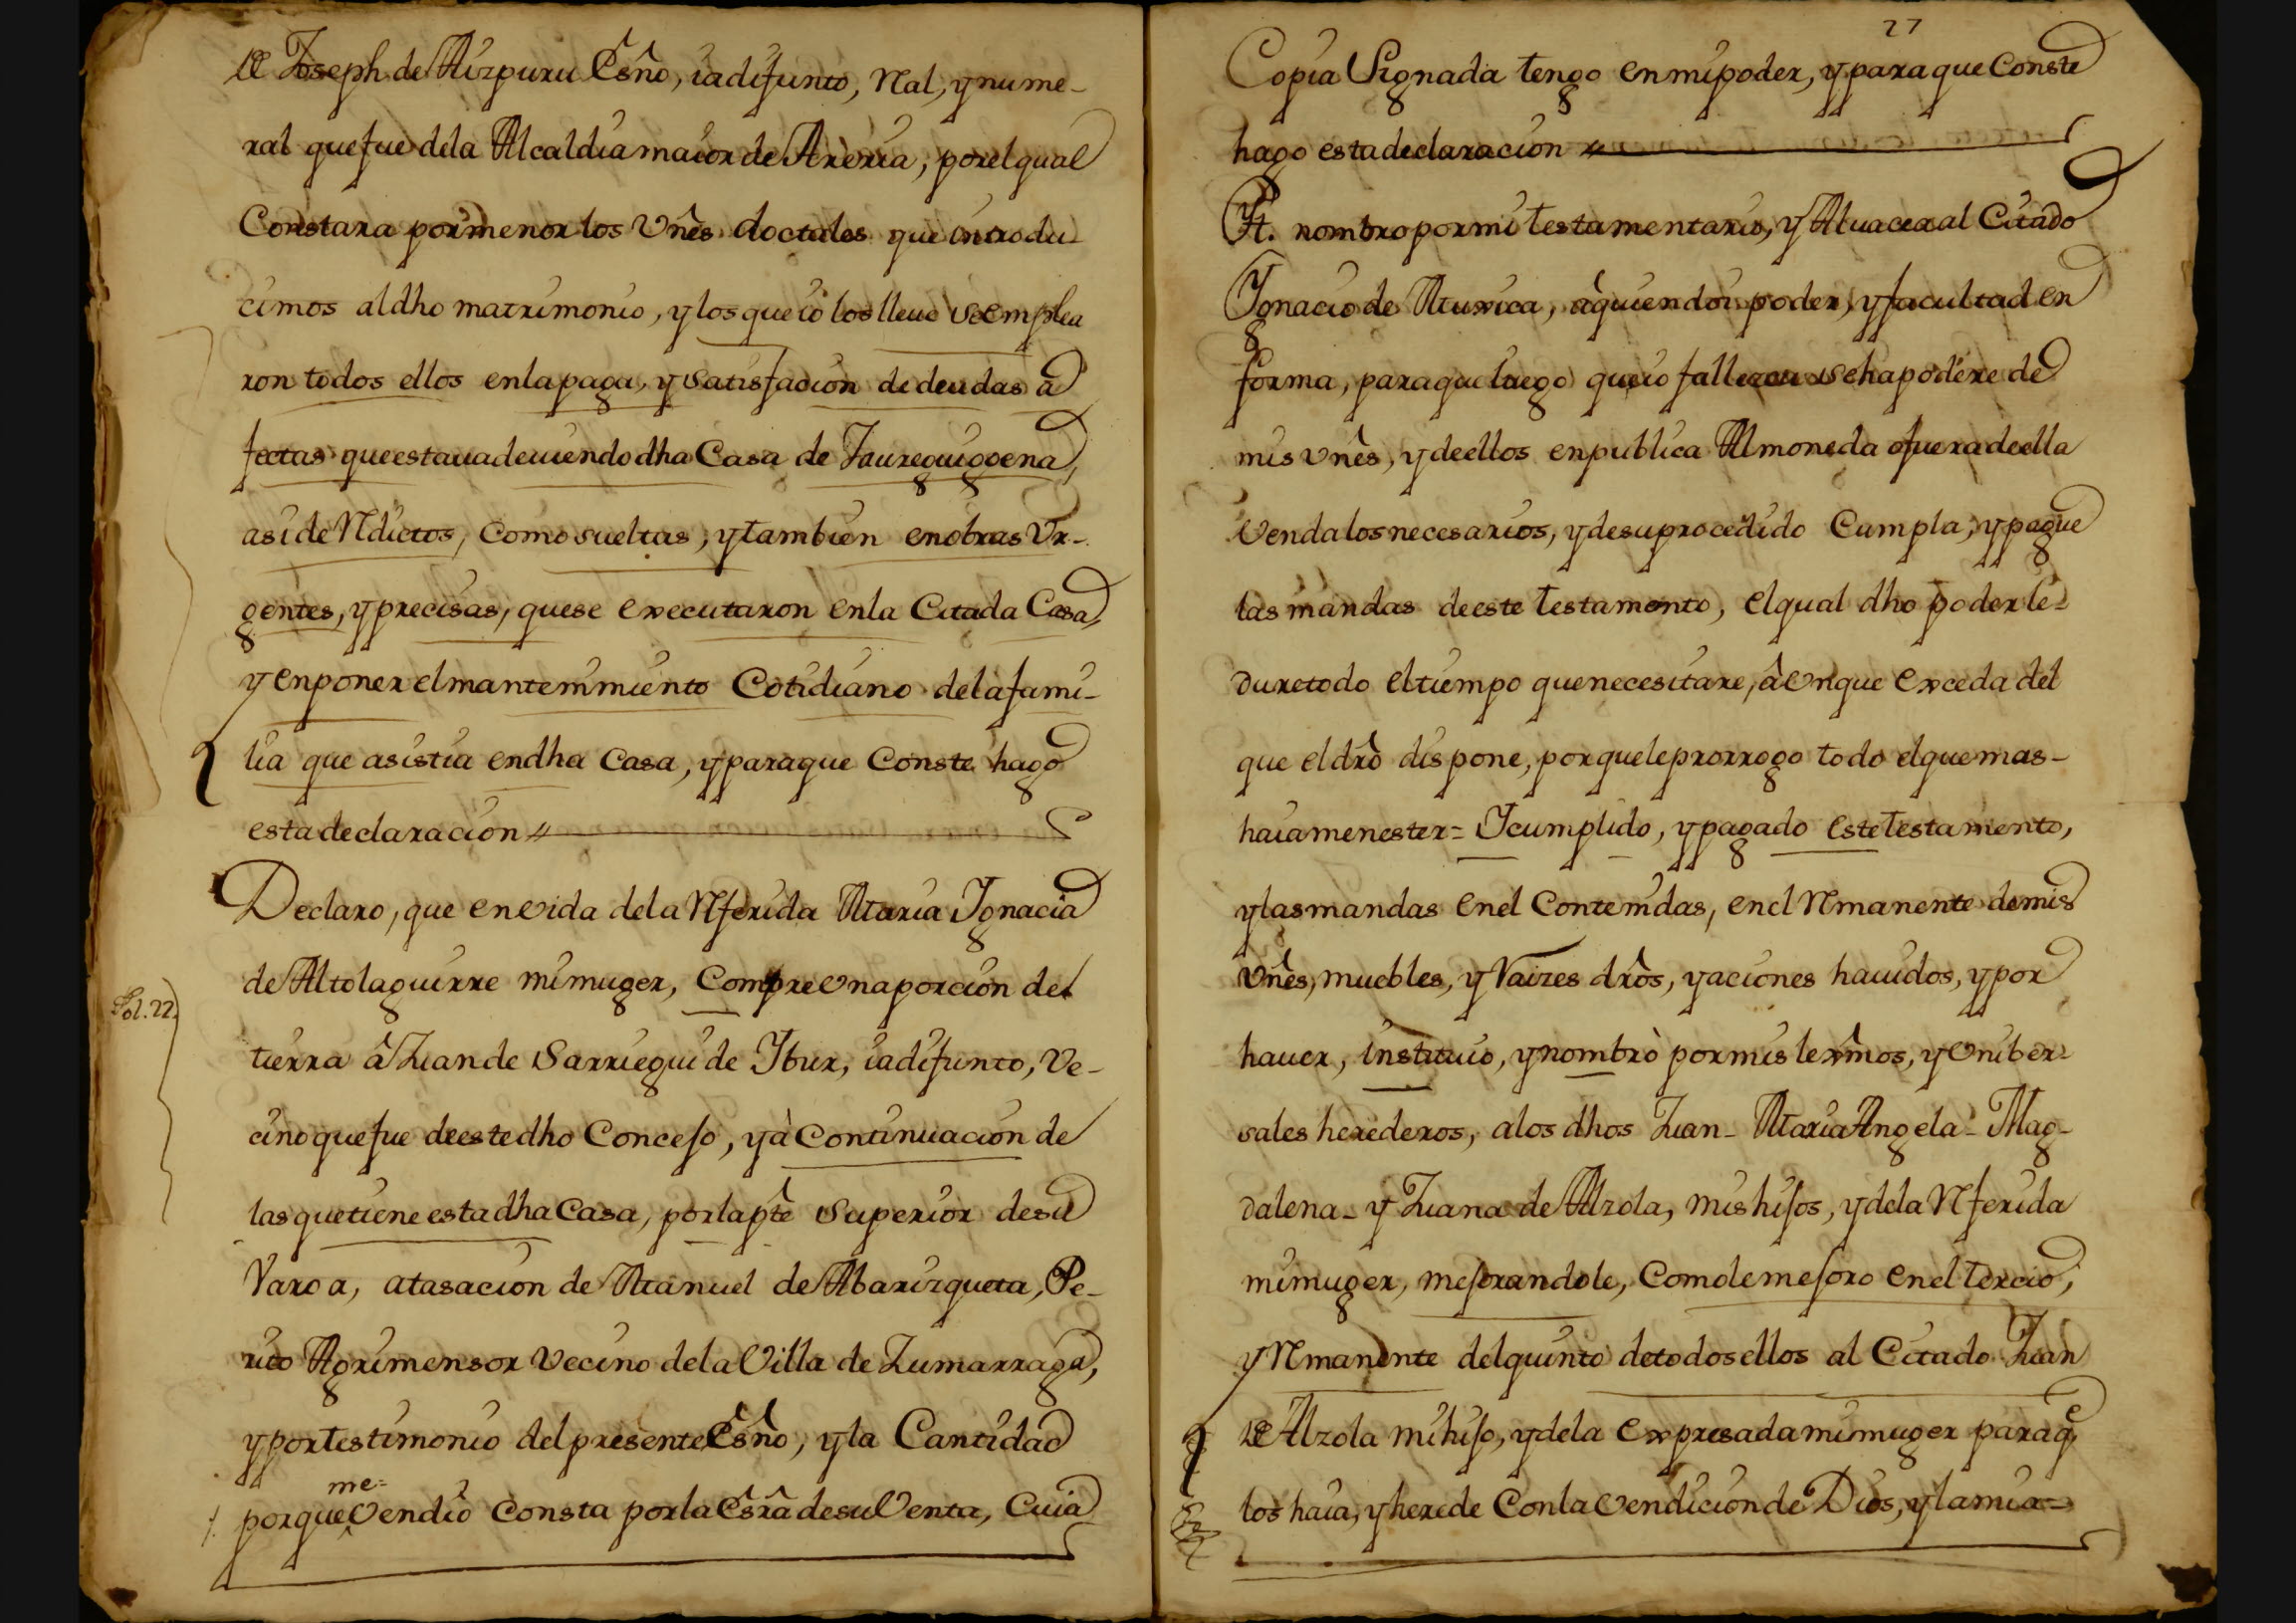 de Joseph de Aizpuru Esño, ia difunto, Rl, y nume-
ral que fue dela Alcaldia maior de Areria, por el qual
Constara por menor los vnês doctales que introdu-
cimos al dho matrimonio, y los que io los lleue se emplea
ron todos ellos en la paga, y satisfacion de deudas a
fectas que estaua deuiendo dha Casa de Jaureguigoena,
asi de Reditos, como sueltas, y tambien en obras Vr-
gentes, y precisas, que se executaron en la Citada Casa,
y en poner el mantenimiento Cotidiano de la fami-
lia que asistia en dha Casa, y para que Conste hago
esta declaracion //
Declaro, que en vida de la Referida Maria Ignacia
de Altolaguirre mi muger, Compre vna porcion de
tierra â Juan de Sarriegui de Ibur, ia difunto, Ve-
cino que fue de este dho Concejo, y à Continuacion de
las que tiene esta dha Casa, por la pte Superior de su
Varoa, a tasacion de Manuel de Abarizqueta, Pe-
rito Agrimensor Vecino de la Villa de Zumarraga,
y por testimonio del presente Esño, y la Cantidad
me-
porque Vendiò Consta por la Esrâ de su Venta, Cuia
Fol. 22.
27
Copia Signada tengo en mi poder, y para que Conste
hago esta declaracion //
Yt. nombro por mi testamentario, y Aluacea al Citado
Ignacio de Muxica, à quien doi poder, y facultad en
forma, para que luego que io fallezca se hapodere de
mis vnês, y de ellos en publica Almoneda o fuera de ella
Venda los necesarios, y de su procedido Cumpla, y pague
las mandas de este testamento, el qual dho poder le-
dure todo el tiempo que necesitare, â vnque exceda del
que el drô dispone, por que le prorrogo todo el que mas-
haia menester = I cumplido, y pagado este testamento,
y las mandas en el Contenidas, en el Remanente de mis
vnês, muebles, y Raizes drôs, y aciones hauidos, y por
hauer, instituio, y nombrò por mis lexmôs, y vniber-
sales herederos, a los dhos Juan - Maria Angela - Mag-
dalena - y Juana de Alzola, mis hijos, y de la Referida
mi muger, mejorandole, Como le mejoro en el tercio,
y Remanente del quinto de todos ellos al Citado Juan
de Alzola mi hijo, y de la expresada mi muger para q̃
los haia, y herede Con la vendicion de Dios, y la mia =